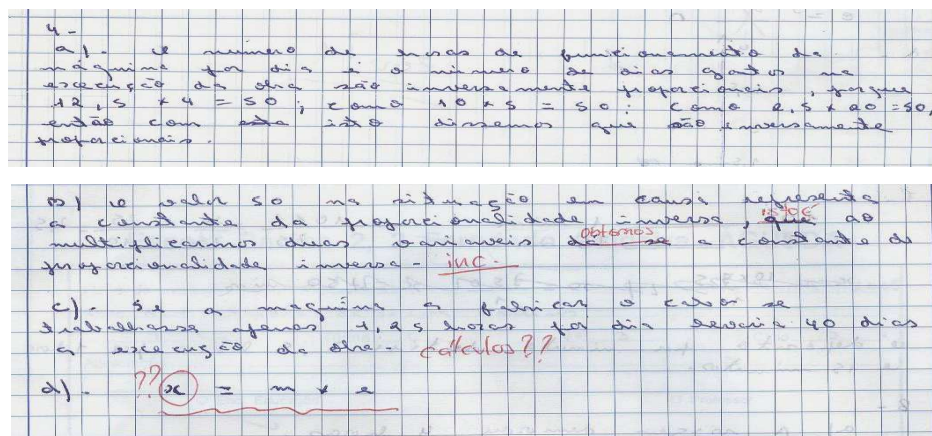 4-
a) - O número de horas de funcionamento da
máquina por dia e o número de dias gastos na
execução da obra são inversamente proporcionais, porque
12,5 * 4 = 50; como 10 * 5 = 50; como 2,5 * 20 = 50,
então com isto dissemos que são inversamente
proporcionais.
b) O valor 50 na situação em causa representa
a constante da proporcionalidade inversa, que ao
isto é
multiplicarmos duas variaveis da-se a constante de
obtemos
proporcionalidade inversa - inc.
c) - Se a maquina a fabricar o cabos se
trabalhasse apenas 1,25 horas por dia levaria 40 dias
a execução da obra - cálculos??
d) - ?? x = m * e